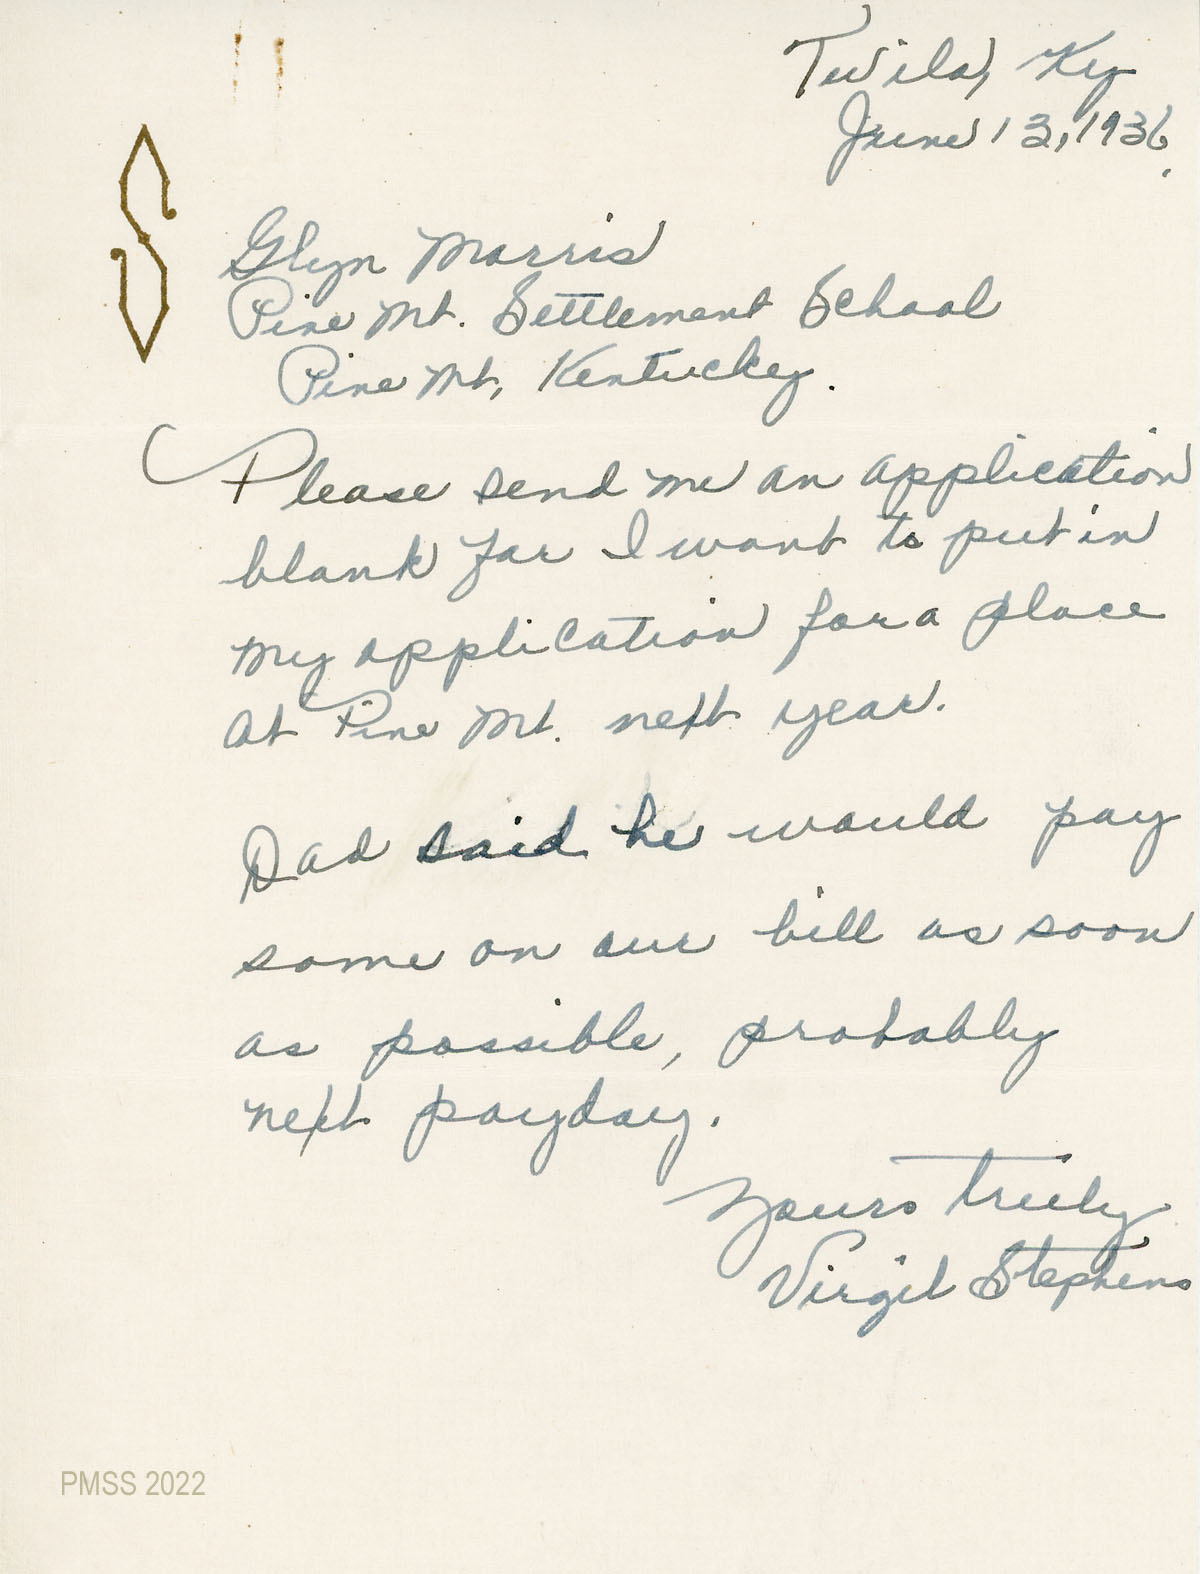 Twila, Ky
June 13, 1936.
S
Glyn Morris
Pine Mt. Settlement School
Pine Mt, Kentucky.
Please send me an application
blank for I want to put in
my application for a place
at Pine Mt. next year.
Dad said he would pay
some on our bill as soon
as possible, probably
next payday.
Yours truly
Virgil Stephens
PMSS 2022